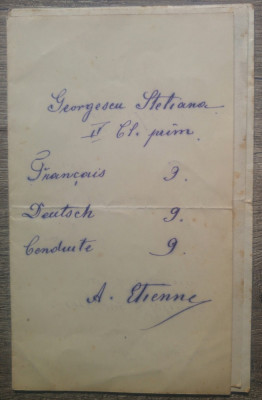 Georgescu Steliana
IV Cl. prim.
Français 9.
Deutsch 9.
Conduite 9.
A. Etienne